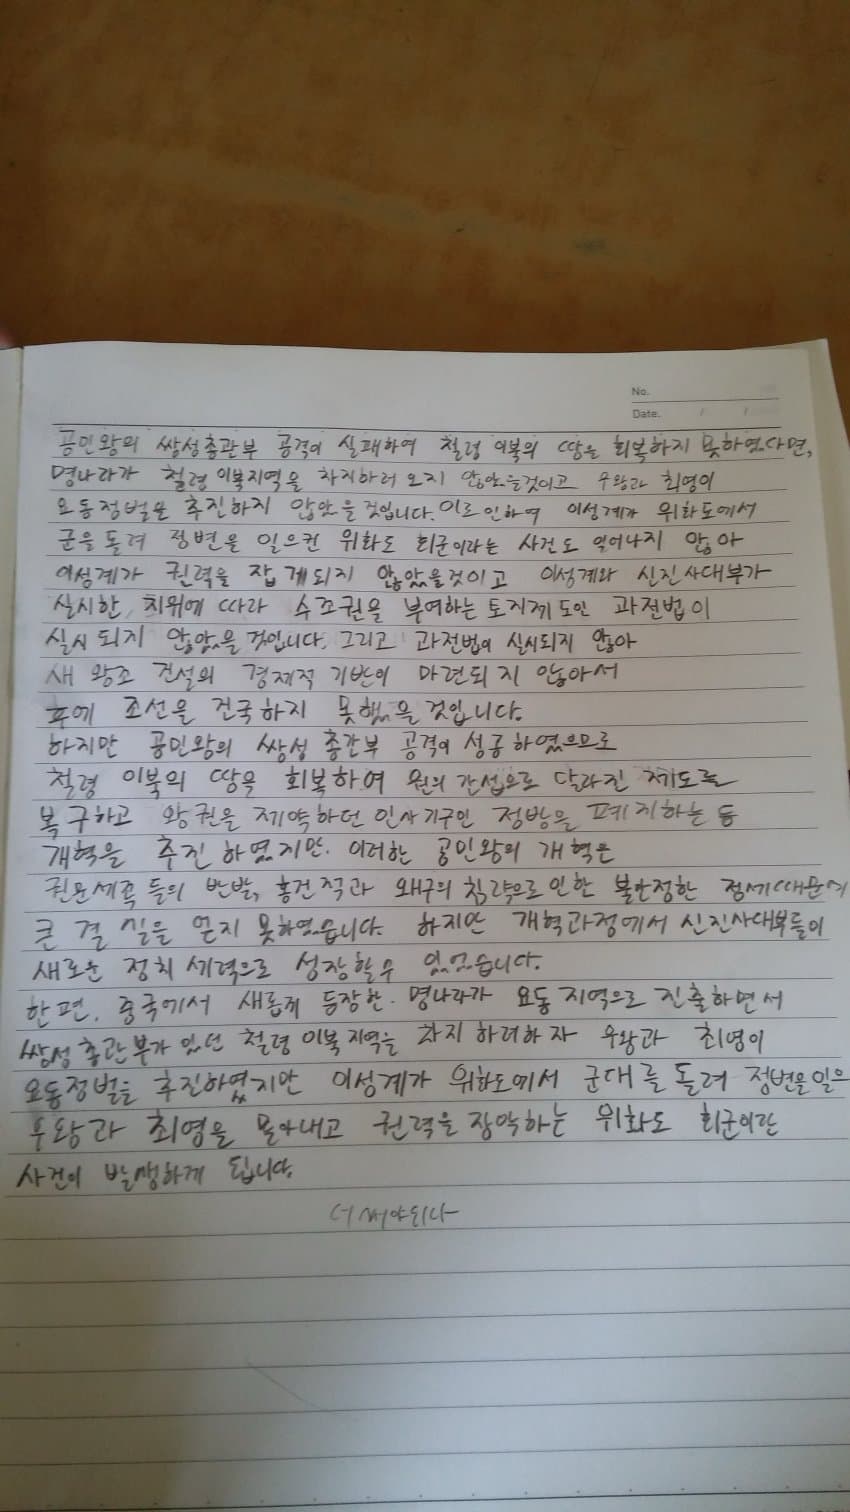 No.
Date. / /
공민왕의 쌍성총관부 공격이 실패하여 철령 이북의 땅을 회복하지 못하였다면,
명나라가 철령 이북지역을 차지하러 오지 않았을것이고 우왕과 최영이
요동정벌을 추진하지 않았을 것입니다. 이로 인하여 이성계가 위화도에서
군을 돌려 정변을 일으킨 위화도 회군이라는 사건도 일어나지 않아
이성계가 권력을 잡게되지 않았을것이고 이성계와 신진사대부가
실시한, 지위에 따라 수조권을 부여하는 토지제도인 과전법이
실시되지 않았을 것입니다. 그리고 과전법이 실시되지 않아
새 왕조 건설의 경제적 기반이 마련되지 않아서
후에 조선을 건국하지 못했을 것입니다.
하지만 공민왕의 쌍성 총관부 공격이 성공하였으므로
철령 이북의 땅을 회복하여 원의 간섭으로 달라진 제도를
복구하고 왕권을 제약하던 인사기구인 정방을 폐지하는 등
개혁을 추진 하였지만. 이러한 공민왕의 개혁은
권문세족 들의 반발, 홍건적과 왜구의 침략으로 인한 불안정한 정세때문에
큰 결실을 얻지 못하였습니다. 하지만 개혁과정에서 신진사대부들이
새로운 정치 세력으로 성장할수 있었습니다.
한편, 중국에서 새롭게 등장한 명나라가 요동 지역으로 진출하면서
쌍성 총관부가 있던 철령 이북 지역을 차지 하려하자 우왕과 최영이
요동정벌을 추진하였지만 이성계가 위화도에서 군대를 돌려 정변을 일으
우왕과 최영을 몰아내고 권력을 장악하는 위화도 회군이란
사건이 발생하게 됩니다.
더 써야되나